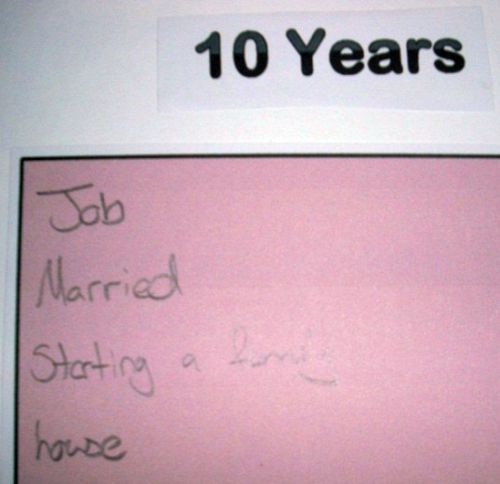 10 Years
Job
Married
Starting a family
house